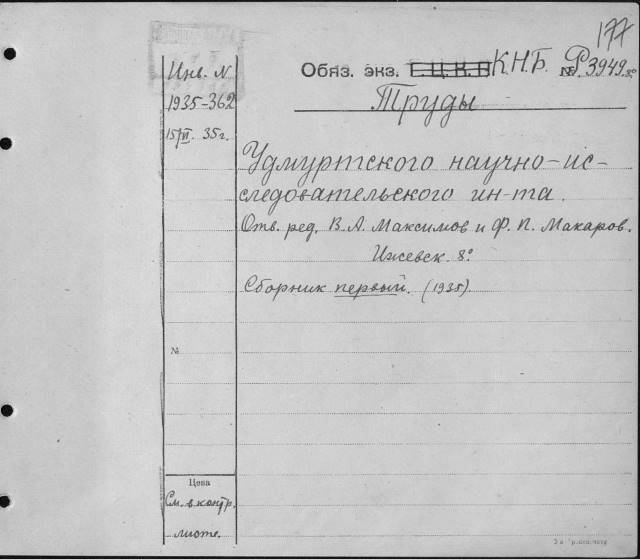 177
Обяз. экз. Г. Ц. К. К.Н.Б. № Р.3949.8°
Инв. N
1935-362
15/VI. 35г.
Труды
Удмуртского научно-ис-
следовательского ин-та.
Отв. ред. В.А. Максимов и Ф. П. Макаров.
Ижевск. 8°
Сборник первый. (1935).
№
Цена
См. в контр.
листе.